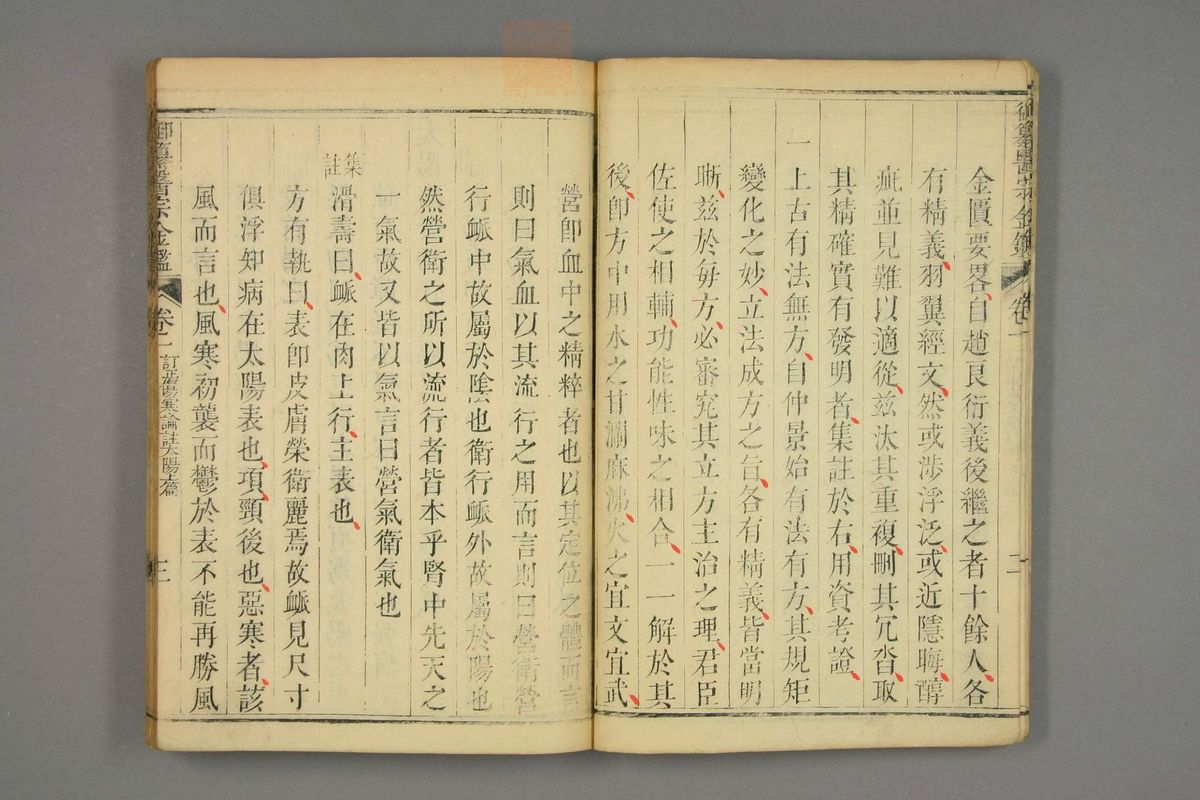 御纂醫宗金鑑 卷一 二
金匱要畧自趙良衍義後繼之者十餘人各
有精義羽翼經文然或涉浮泛或近隱晦醇
疵並見難以適從兹汰其重複刪其冗沓取
其精確實有發明者集註於右用資考證
一上古有法無方自仲景始有法有方其規矩
變化之妙立法成方之旨各有精義皆當明
晣兹於每方必審究其立方主治之理君臣
佐使之相輔功能性味之相合一一解於其
後卽方中用水之甘瀾麻沸火之宜文宜武
營卽血中之精粹者也以其定位之體而言
則曰氣血以其流行之用而言則曰營衛營
行衇中故屬於陰也衛行衇外故屬於陽也
然營衛之所以流行者皆本乎腎中先天之
一氣故又皆以氣言曰營氣衛氣也
集註 滑壽曰衇在肉上行主表也
方有執曰表卽皮膚榮衛麗焉故衇見尺寸
俱浮知病在太陽表也項頸後也惡寒者該
風而言也風寒初襲而鬱於表不能再勝風
御纂醫宗金鑑 卷一 訂正傷寒論註太陽上篇 三